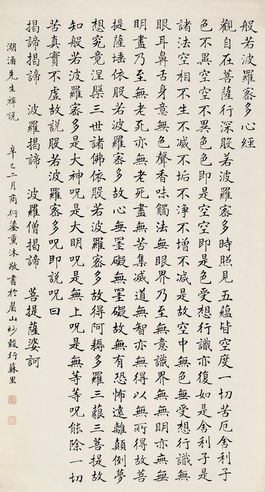 般若波羅蜜多心經
觀自在菩薩行深般若波羅蜜多時照見五蘊皆空度一切苦厄舍利子
色不異空空不異色色即是空空即是色受想行識亦復如是舍利子是
諸法空相不生不滅不垢不淨不增不減是故空中無色無受想行識無
眼耳鼻舌身意無色聲香味觸法無眼界乃至無意識界無無明亦無無
明盡乃至無老死亦無老死盡無苦集滅道無智亦無得以無所得故菩
提薩埵依般若波羅蜜多故心無罣礙無罣礙故無有恐怖遠離顛倒夢
想究竟涅槃三世諸佛依般若波羅蜜多故得阿耨多羅三藐三菩提故
知般若波羅蜜多是大神咒是大明咒是無上咒是無等等咒能除一切
苦真實不虛故說般若波羅蜜多咒即說咒曰
揭諦揭諦 波羅揭諦 波羅僧揭諦 菩提薩婆訶
先生禪說 辛巳二月商衍鎏薰沐敬書於眉山紗縠行蘇里